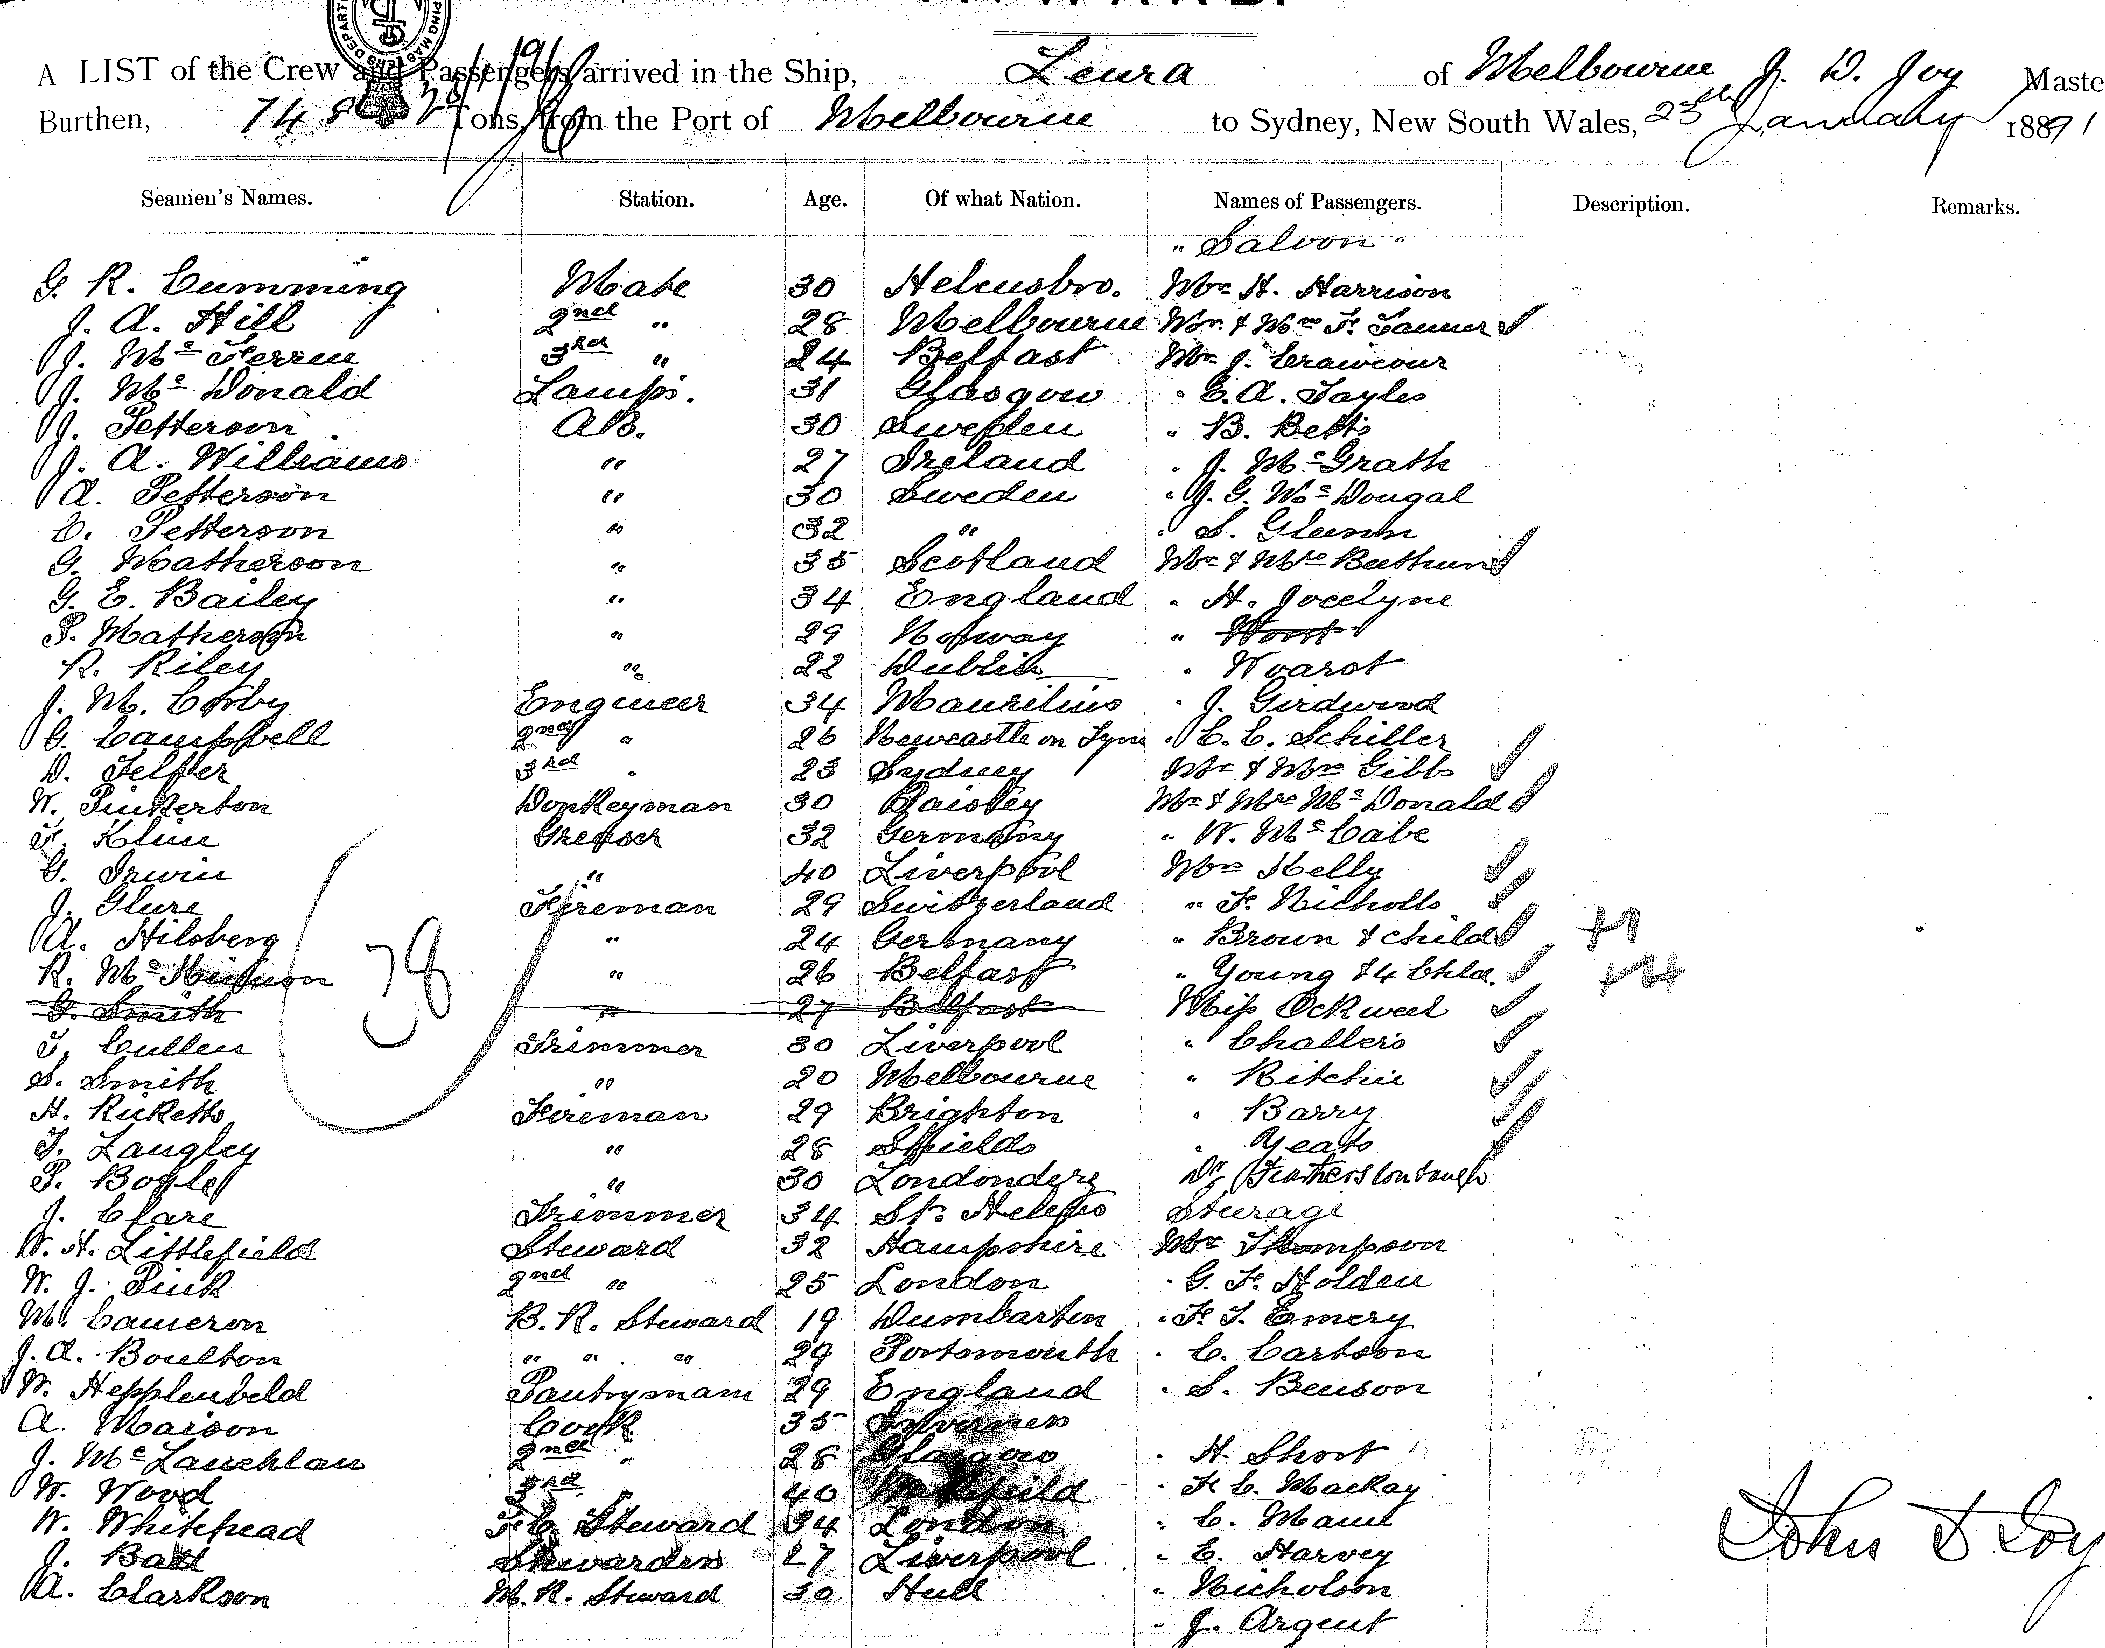 A LIST of the Crew and Passengers arrived in the Ship, Leura of Melbourne J. D. Joy Maste
Burthen, Tons from the Port of Melbourne to Sydney, New South Wales, 23rd January 1891
Seamen's Names. Station. Age. Of what Nation. Names of Passengers. Description. Remarks.
" Saloon "
G. R. Cumming Mate 30 Helensbro. Mr H. Harrison
J. A. Hill 2nd " 28 Melbourne Mr & Mrs F. Tanner
J. Mc Ferren 3rd " 24 Belfast Mr J. Crawcour
J. Mc Donald Lamps. 31 Glasgow " E. A. Tayles
J. Petterson AB. 30 Sweden " B. Betts
J. A. Williams " 27 Ireland " J. McGrath
A. Petterson " 30 Sweden " J. G. Mc Dougal
C. Petterson " 32 " " S. Glenn
G. Matheson " 35 Scotland Mr & Mrs
G. E. Bailey " 34 England " H. Jocelyne
P. Matherson " 29 Norway "
R. Riley " 22 Dublin "
J. M. Corby Engineer 34 Mauritius " J. Girdwood
G. Campbell 2nd " 26 Newcastle on Tyne " C. E. Schiller
D. Telfer 3rd " 23 Sydney Mr & Mrs Gibbs
W. Pinkerton Donkeyman 30 Paisley Mr & Mrs Mc Donald
F. Kline Greaser 32 Germany " W. Mc Cabe
G. Irwin " 40 Liverpool Mrs Kelly
J. Glure Fireman 29 Switzerland " F. Nicholls
A. Hilsberg " 24 Germany " Brown & child +1
R. Mc Kinnon " 26 Belfast " Young & 4 Chld. +4
G. Smith " 27 Belfast Miss Ockwell
78
T. Cullen Trimmer 30 Liverpool " Challers
S. Smith " 20 Melbourne " Ritchie
H. Ricketts Fireman 29 Brighton " Barry
T. Langley " 28 Shields " Yeats
P. Boyle " 30 Londonderg Dr Featherstonhaugh
J. Clare Trimmer 34 St. Helens Sturage
W. H. Littlefield Steward 32 Hampshire Mr Thompson
W. J. Pink 2nd " 25 London " G. F. Holden
M. Cameron B. R. Steward 19 Dumbarton " F. T. Emery
J. A. Boulton " " " 29 Portsmouth " C. Carlson
W. Hepplenbeld Pantryman 29 England " S. Benson
A. Maison Cook 35 Inverness
J. Mc Lauchlan 2nd " 28 Glasgow " H. Short
W. Wood 3rd " 40 " F. C. Mackay
W. Whitehead F. C. Steward 34 London " C. Maud
J. Ball Stewardess 27 Liverpool " E. Harvey
A. Clarkson M. R. Steward 30 Hull " Nicholson
" J. Argent
John D Joy